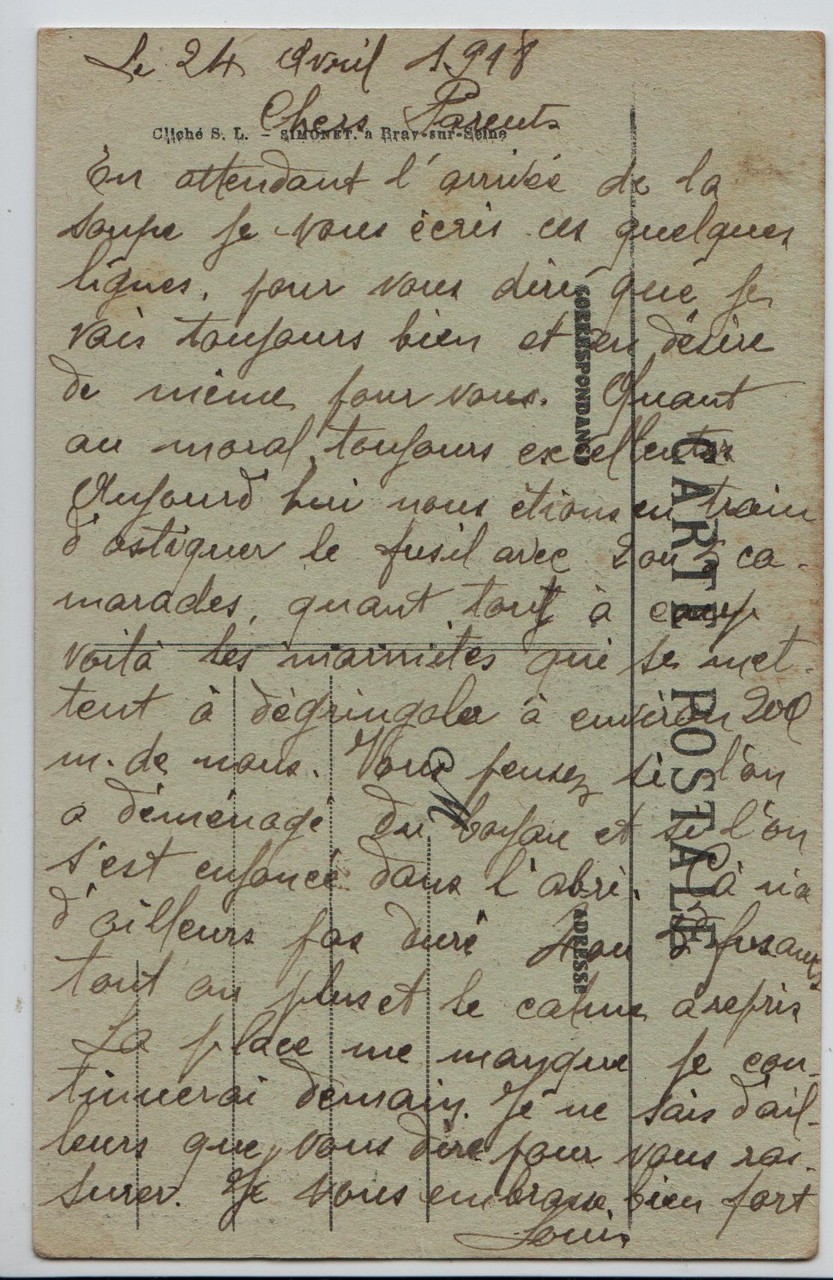 Le 24 Avril 1918
Chers Parents
Cliché S. L. - SIMONET. a Bray-sur-Seine
En attendant l'arrivée de la
soupe je vous écris ces quelques
lignes, pour vous dire que je
vais toujours bien et en désire
de même pour vous. Quant
au moral, toujours excellent
Aujourd'hui nous étions en train
d'astiquer le fusil avec 2 ou 3 ca-
marades, quant tout à coup
voilà les marmites qui se met-
tent à dégringoler à environ 200
m. de nous. Vous pensez si l'on
a déménagé du boyau et si l'on
s'est enfoncé dans l'abri. Cà n'a
d'ailleurs pas duré 2 ou 3 fusants
tout au plus et le calme a repris
La place me manque je con-
tinuerai demain. Je ne sais d'ail-
leurs que vous dire pour vous ras-
surer. Je vous embrasse bien fort
Louis
CARTE POSTALE
CORRESPONDANCE
ADRESSE
M